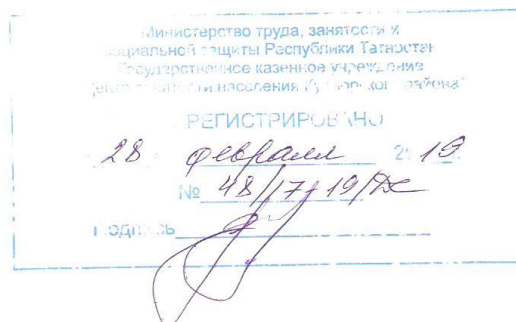 Министерство труда, занятости и
социальной защиты Республики Татарстан
Государственное казенное учреждение
занятости населения района"
РЕГИСТРИРОВАНО
28 февраля 2019
№ 48/17/19/
Подпись